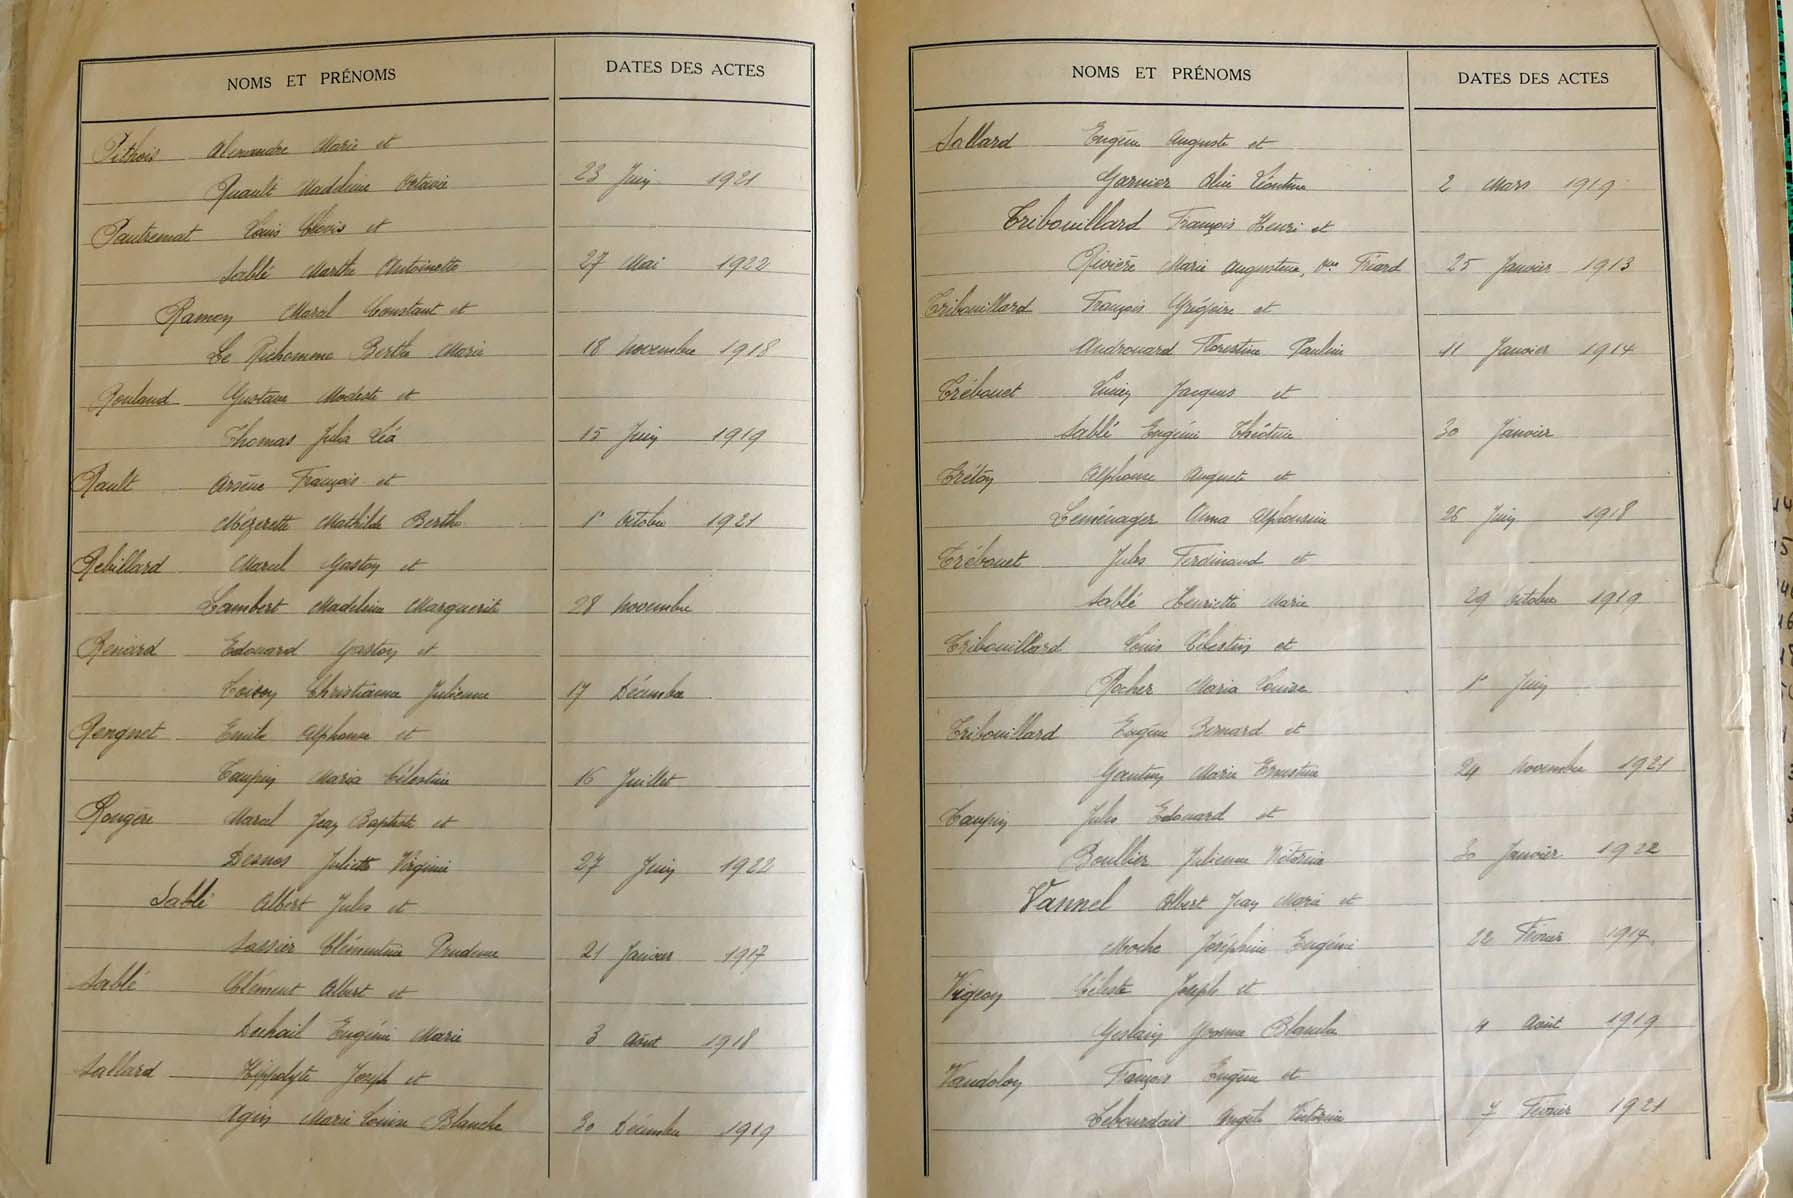 NOMS ET PRÉNOMS DATES DES ACTES
Pithois Alexandre Marie et
Ruault Madeleine Octavie 23 Juin 1921
Pautremat Louis Clovis et
Sablé Marthe Antoinette 27 Mai 1922
Ramon Marcel Constant et
Le Richomme Berthe Marie 18 Novembre 1918
Rouland Gustave Modeste et
Thomas Julia Léa 15 Juin 1919
Rault Arsène François et
Mézerette Mathilde Berthe 1er Octobre 1921
Rebillard Marcel Gaston et
Lambert Madeleine Marguerite 28 Novembre
Renard Edouard Gaston et
Loison Christianne Julienne 17 Décembre
Renguet Emile Alphonse et
Taupin Maria Célestine 16 Juillet
Rougère Marcel Jean Baptiste et
Desnos Juliette Virginie 27 Juin 1922
Sablé Albert Jules et
Sassier Clémentine Prudence 21 Janvier 1917
Sablé Clément Albert et
Eugénie Marie 3 Août 1918
Sallard Hippolyte Joseph et
Agin Marie Louise Blanche 30 Décembre 1919
NOMS ET PRÉNOMS DATES DES ACTES
Sallard Eugène Auguste et
Garnier Aline Léontine 2 Mars 1919
Tribouillard François Henri et
Rivière Marie Augustine, vve Friard 25 Janvier 1913
Tribouillard François Grégoire et
Androuard Florestine Pauline 11 Janvier 1914
Trébouet Lucien Jacques et
Sablé Eugénie Théotine 30 Janvier
Tréton Alphonse Auguste et
Leménager Anna Alphonsine 26 Juin 1918
Trébouet Jules Ferdinand et
Sablé Henriette Marie 29 Octobre 1919
Tribouillard Louis Célestin et
Rocher Maria Louise 1er Juin
Tribouillard Eugène Bernard et
Marie Ernestine 24 Novembre 1921
Taupin Jules Edouard et
Boullier Julienne Victorine 30 Janvier 1922
Vannel Albert Jean Marie et
Moche Joséphine Eugénie 22 Février 1914
Vigeon Céleste Joseph et
Geslain Yvonne Blanche 4 Août 1919
Vaudolon François Eugène et
Lebourdais Angèle Victorine 7 Février 1921